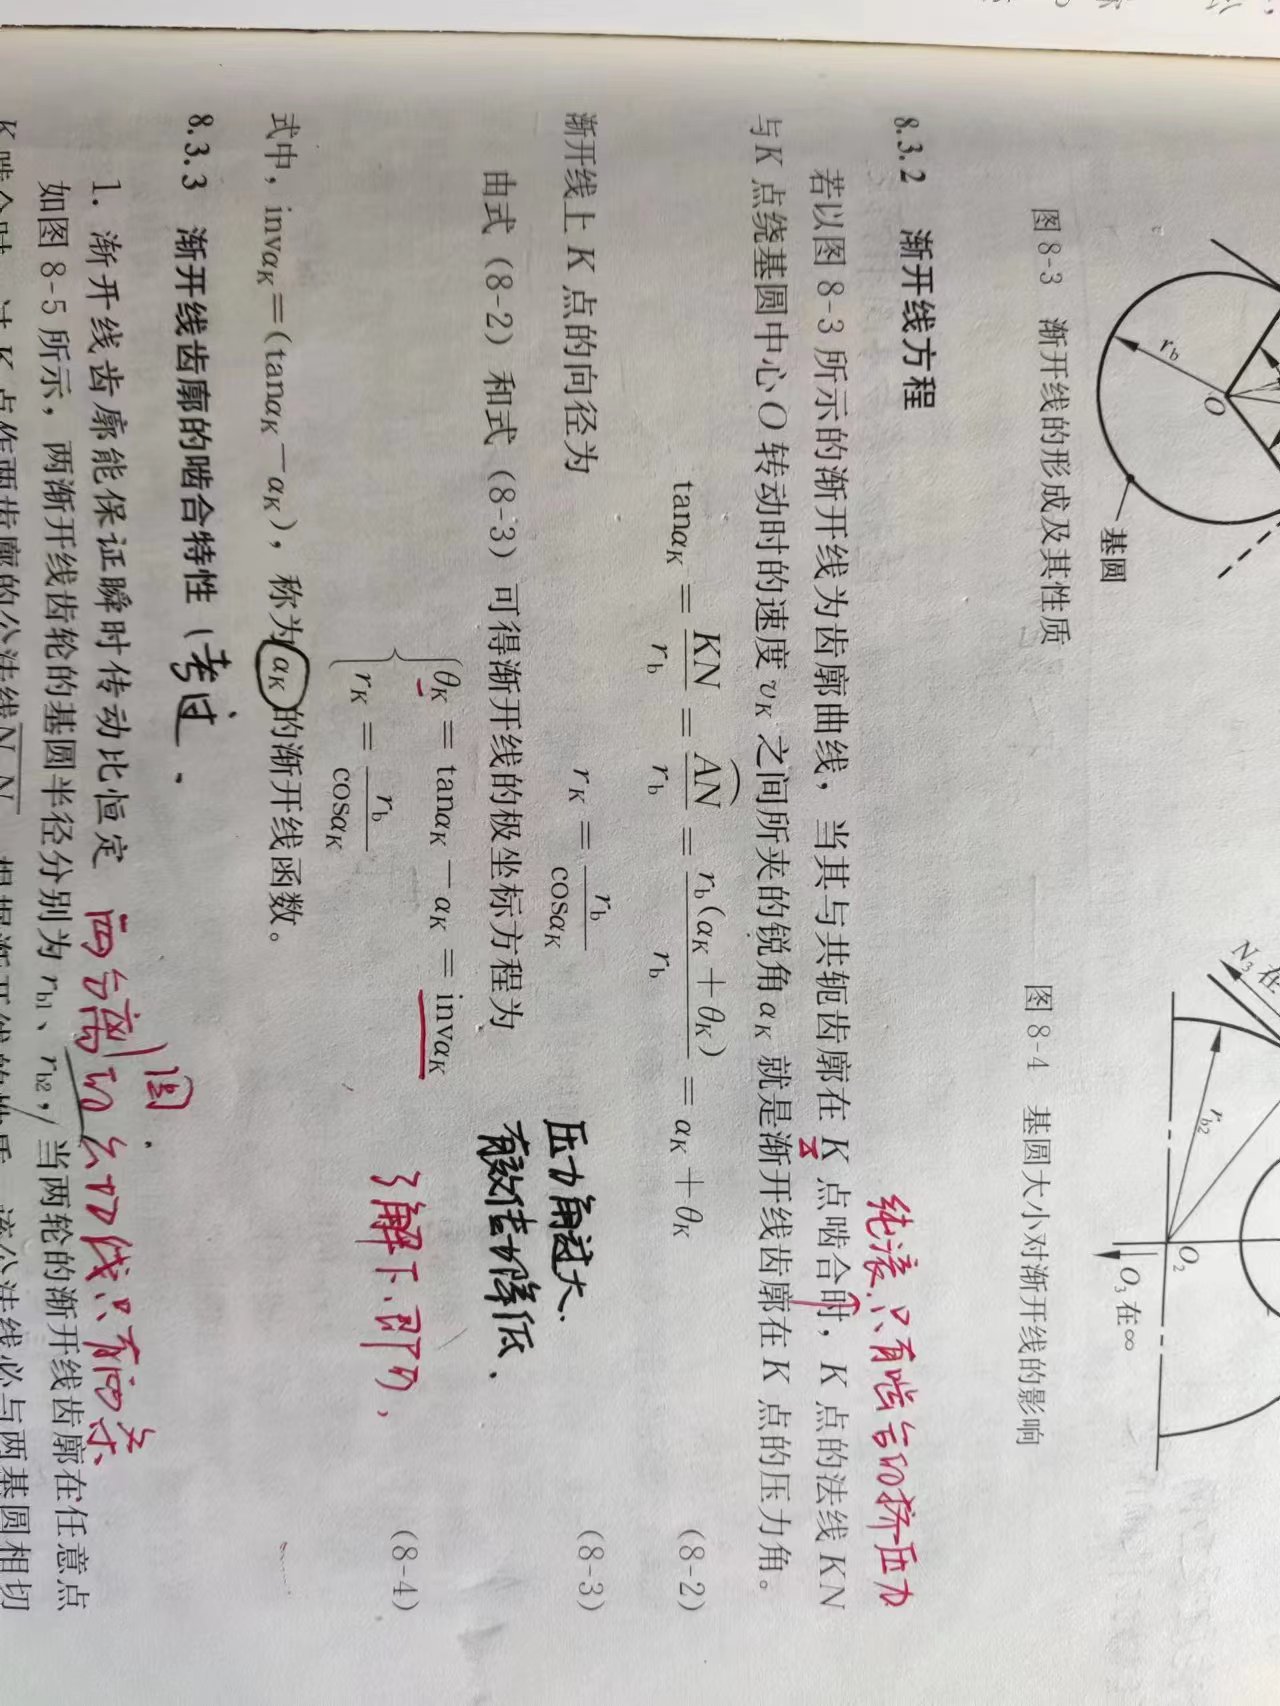 N₃在
r_b
O
基圆
r_b2
O₂
O₃在∞
图 8-3 渐开线的形成及其性质
图 8-4 基圆大小对渐开线的影响
8.3.2 渐开线方程
纯滚.只有啮合的挤压力
若以图 8-3 所示的渐开线为齿廓曲线，当其与共轭齿廓在 K 点啮合时，K 点的法线 KN
与 K 点绕基圆中心 O 转动时的速度 v_K 之间所夹的锐角 α_K 就是渐开线齿廓在 K 点的压力角。
tanα_K = KN/r_b = AN/r_b = r_b(α_K + θ_K)/r_b = α_K + θ_K (8-2)
渐开线上 K 点的向径为
r_K = r_b/cosα_K (8-3)
压力角过大.
有效传力降低.
由式 (8-2) 和式 (8-3) 可得渐开线的极坐标方程为
{θ_K = tanα_K − α_K = invα_K
r_K = r_b/cosα_K (8-4)
了解下即可,
式中，invα_K=(tanα_K−α_K)，称为 α_K 的渐开线函数。
8.3.3 渐开线齿廓的啮合特性 (考过.
1. 渐开线齿廓能保证瞬时传动比恒定
两分离圆的公切线只有两条
如图 8-5 所示，两渐开线齿轮的基圆半径分别为 r_b1、r_b2，当两轮的渐开线齿廓在任意点
K 啮合时，过 K 点作两齿廓的公法线 N N 根据渐开线的性质，该公法线必与两基圆相切